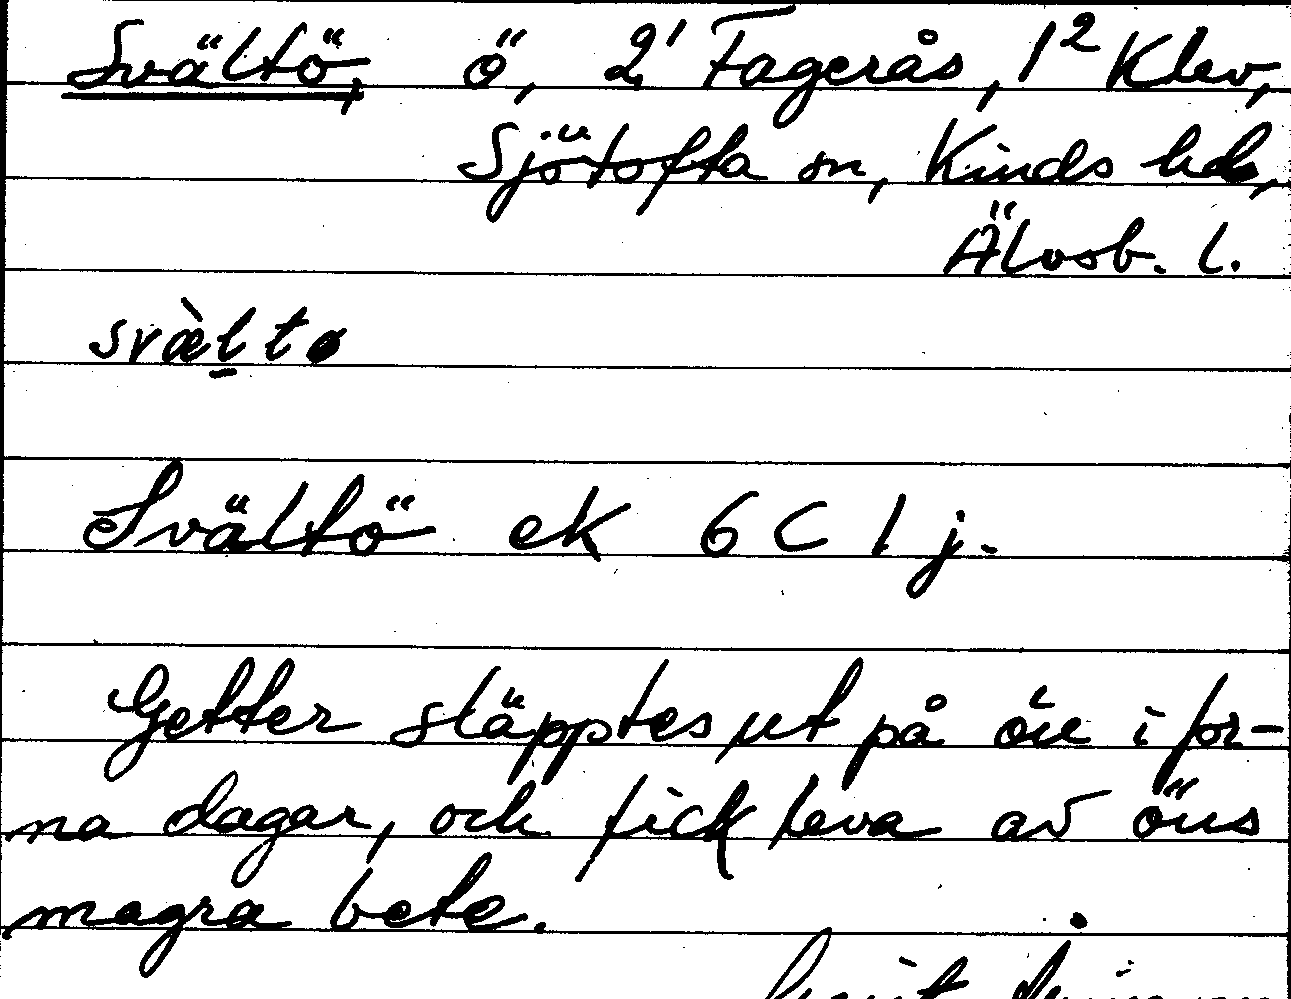 Svältö, ö, 2¹ Fagerås, 1² Klev,
Sjötofta sn, Kinds hd,
Älvsb. l.
svæ̀ltø
Svältö ek 6C 1j.
Getter släpptes ut på ön i for-
na dagar, och fick leva av öns
magra bete.